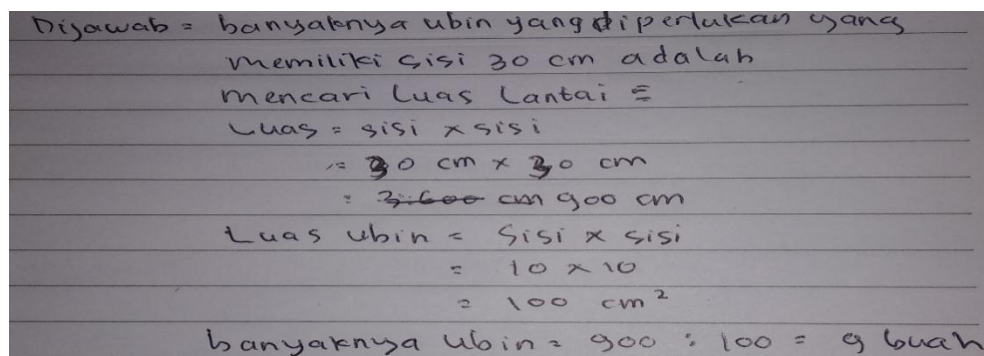 Dijawab = banyaknya ubin yang diperlukan yang
memiliki sisi 30 cm adalah
mencari Luas Lantai =
Luas = sisi x sisi
= 30 cm x 30 cm
= 3.600 cm 900 cm
Luas ubin = sisi x sisi
= 10 x 10
= 100 cm²
banyaknya ubin = 900 : 100 = 9 buah